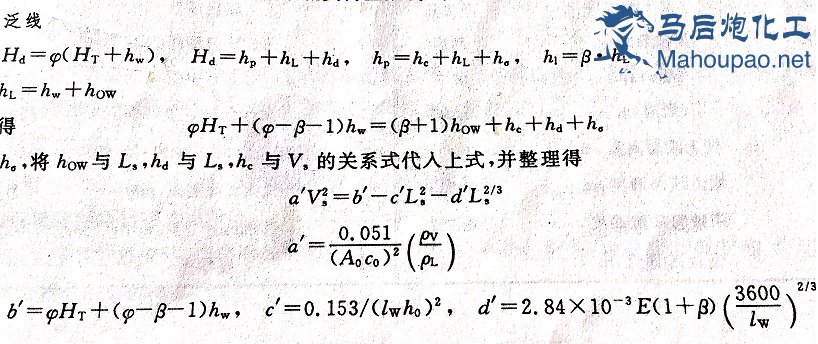 马后炮化工
Mahoupao.net
泛线
H_d=φ(H_T+h_w), H_d=h_p+h_L+h_d, h_p=h_c+h_L+h_σ, h_l=β·h_L
h_L=h_w+h_OW
得 φH_T+(φ-β-1)h_w=(β+1)h_OW+h_c+h_d+h_σ
h_σ,将 h_OW 与 L_s,h_d 与 L_s,h_c 与 V_s 的关系式代入上式,并整理得
a′V_s²=b′-c′L_s²-d′L_s^{2/3}
a′=\frac{0.051}{(A_0c_0)²}(\frac{ρ_V}{ρ_L})
b′=φH_T+(φ-β-1)h_w, c′=0.153/(l_Wh_0)², d′=2.84×10^{-3}E(1+β)(\frac{3600}{l_W})^{2/3}